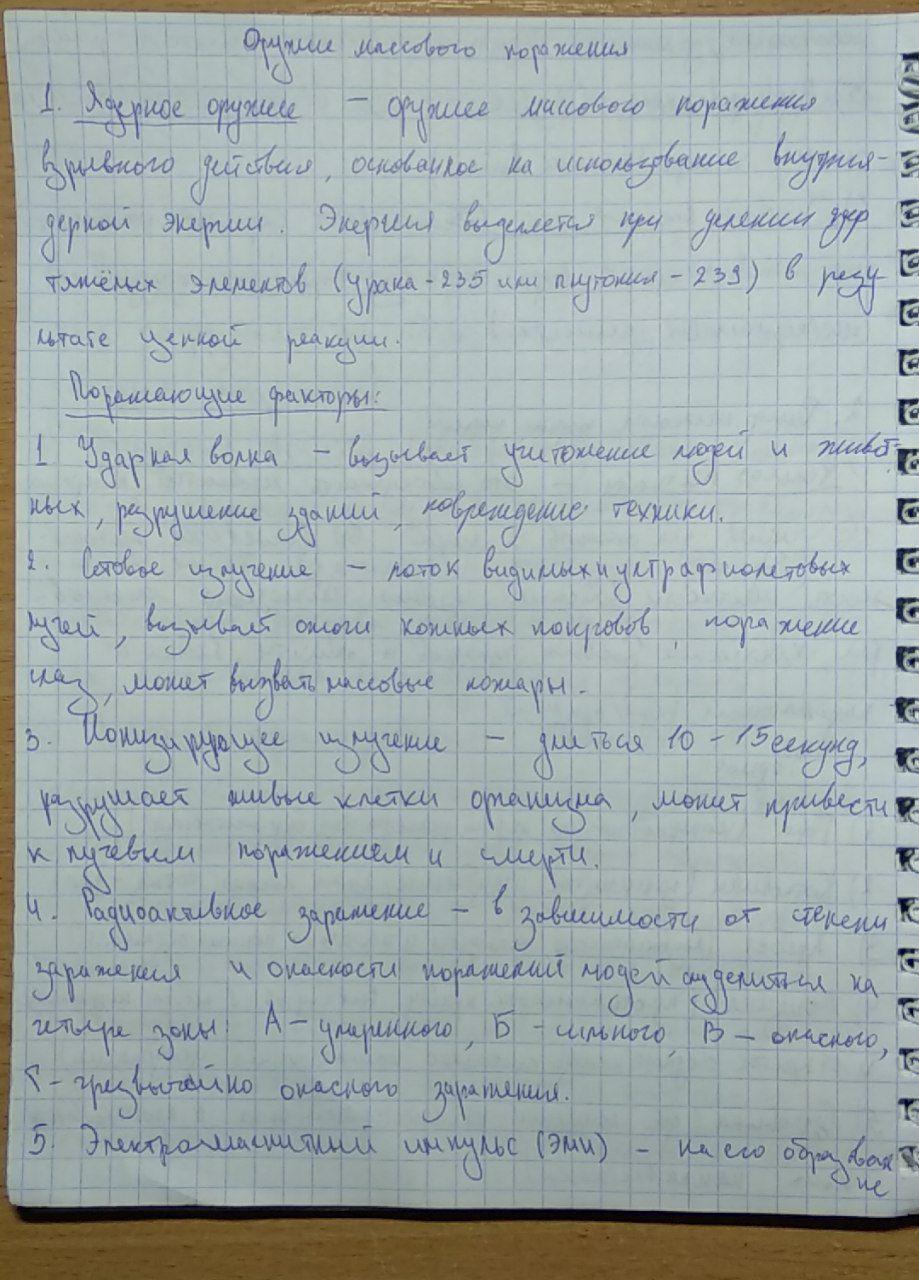 Оружие массового поражения
1. Ядерное оружие – оружие массового поражения
взрывного действия, основанное на использование внутрия-
дерной энергии. Энергия выделяется при делении ядер
тяжёлых элементов (урана-235 или плутония-239) в резу-
льтате цепной реакции.
Поражающие факторы:
1 Ударная волна – вызывает уничтожение людей и живот-
ных, разрушение зданий, повреждение техники.
2. Световое излучение – поток видимых и ултрафиолетовых
лучей, вызывает ожоги кожных покровов, поражение
глаз, может вызвать массовые пожары.
3. Ионизирующее излучение – длиться 10-15 секунд,
разрушает живые клетки организма, может привести
к лучевым поражением и смерти.
4. Радиоактивное заражение – в зависимости от степени
заражения и опасности поражений людей делиться на
четыре зоны: А – умеренного, Б – сильного, В – опасного,
Г – чрезвычайно опасного заражения.
5. Электромагнитный импульс (ЭМИ) – на его образован
ие